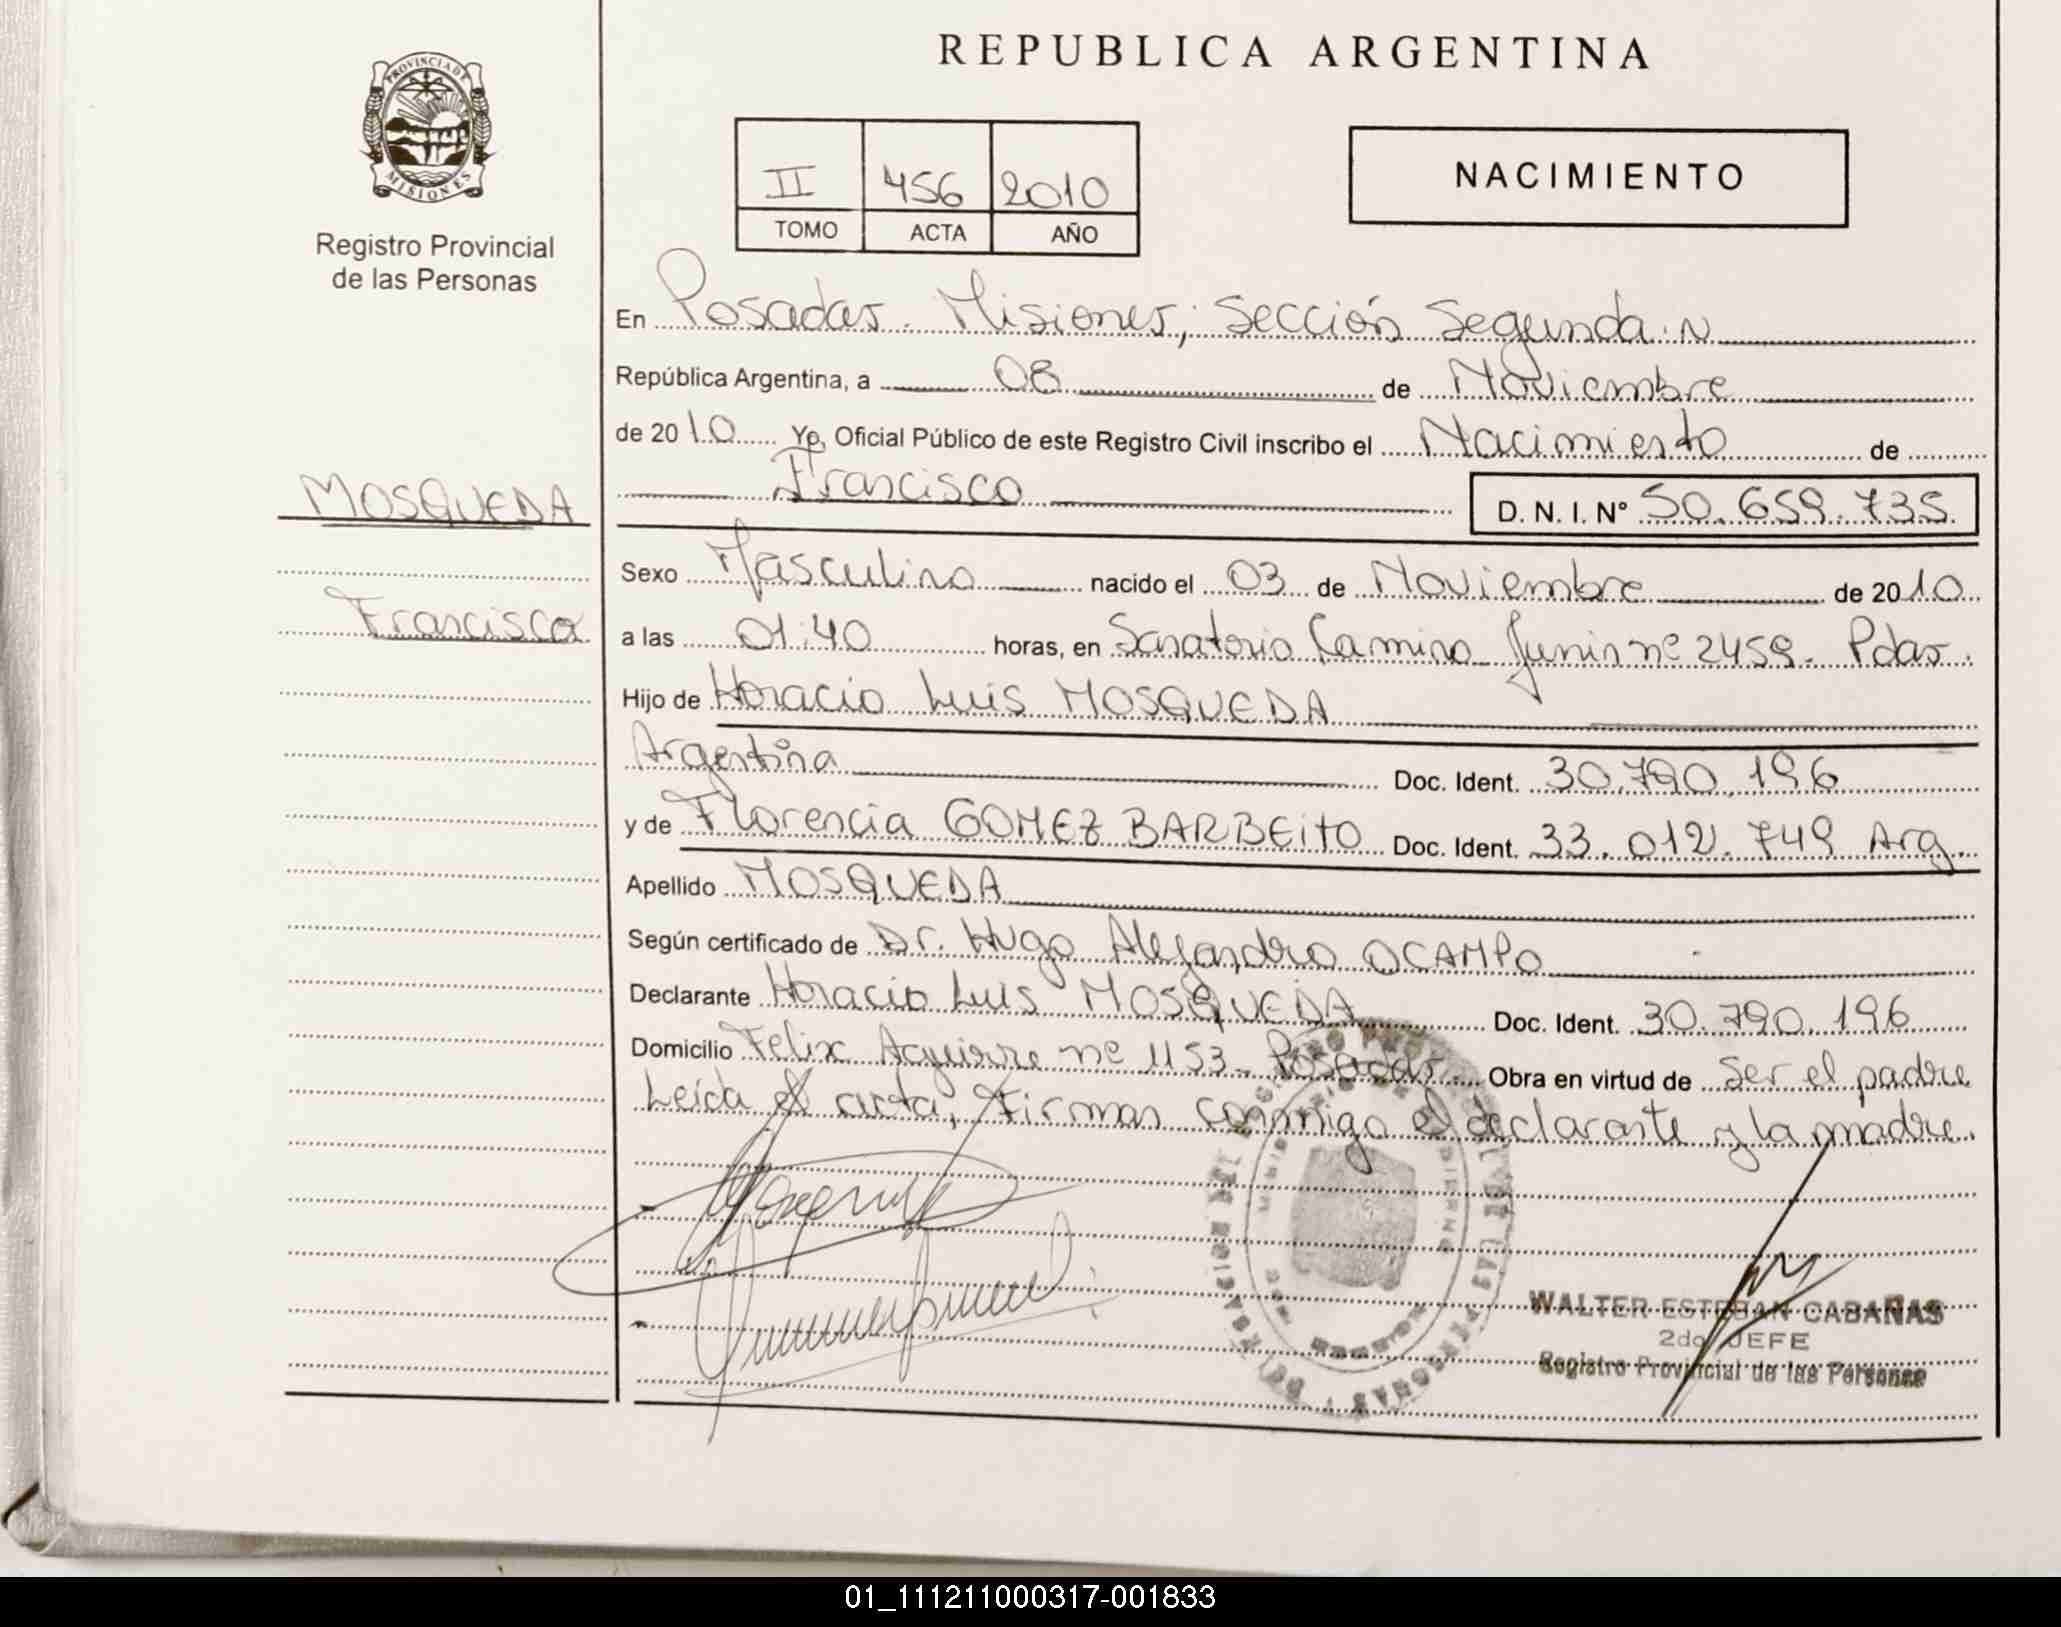 REPUBLICA ARGENTINA
PROVINCIA DE
MISIONES
Registro Provincial
de las Personas
II 456 2010
TOMO ACTA AÑO
NACIMIENTO
En Posadas. Misiones, Sección Segunda. N
República Argentina, a 08 de Noviembre
de 2010 Yo, Oficial Público de este Registro Civil inscribo el Nacimiento de
Francisco D. N. I. N° 50.659.735.
MOSQUEDA
Francisco
Sexo Masculino nacido el 03 de Noviembre de 2010
a las 01:40 horas, en Sanatorio Camino Junin nº 2459. Pdas.
Hijo de Horacio Luis MOSQUEDA
Argentina Doc. Ident. 30.790.196
y de Florencia GOMEZ BARBEITO Doc. Ident. 33.012.749 Arg.
Apellido MOSQUEDA
Según certificado de Dr. Hugo Alejandro OCAMPO
Declarante Horacio Luis MOSQUEDA Doc. Ident. 30.790.196
Domicilio Felix Aguirre nº 1153. Posadas. Obra en virtud de ser el padre
Leída el acta, firman conmigo el declarante y la madre.
WALTER ESTEBAN CABAÑAS
2do JEFE
Registro Provincial de las Personas
01_111211000317-001833